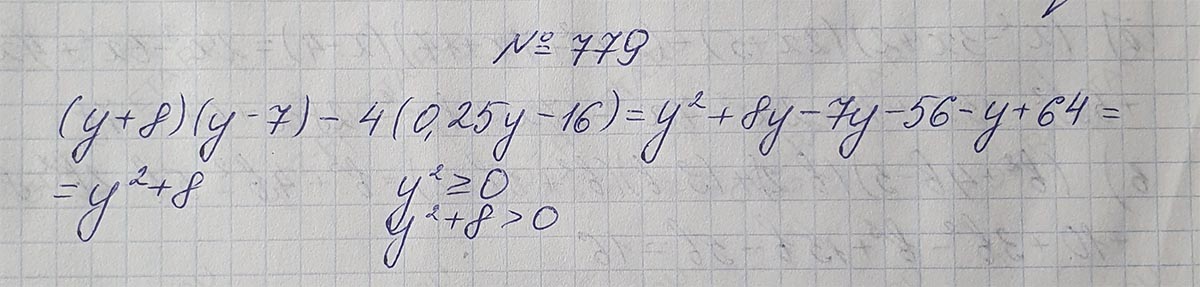 № 779
(y+8)(y-7)-4(0,25y-16)=y²+8y-7y-56-y+64=
=y²+8 y²≥0
y²+8>0